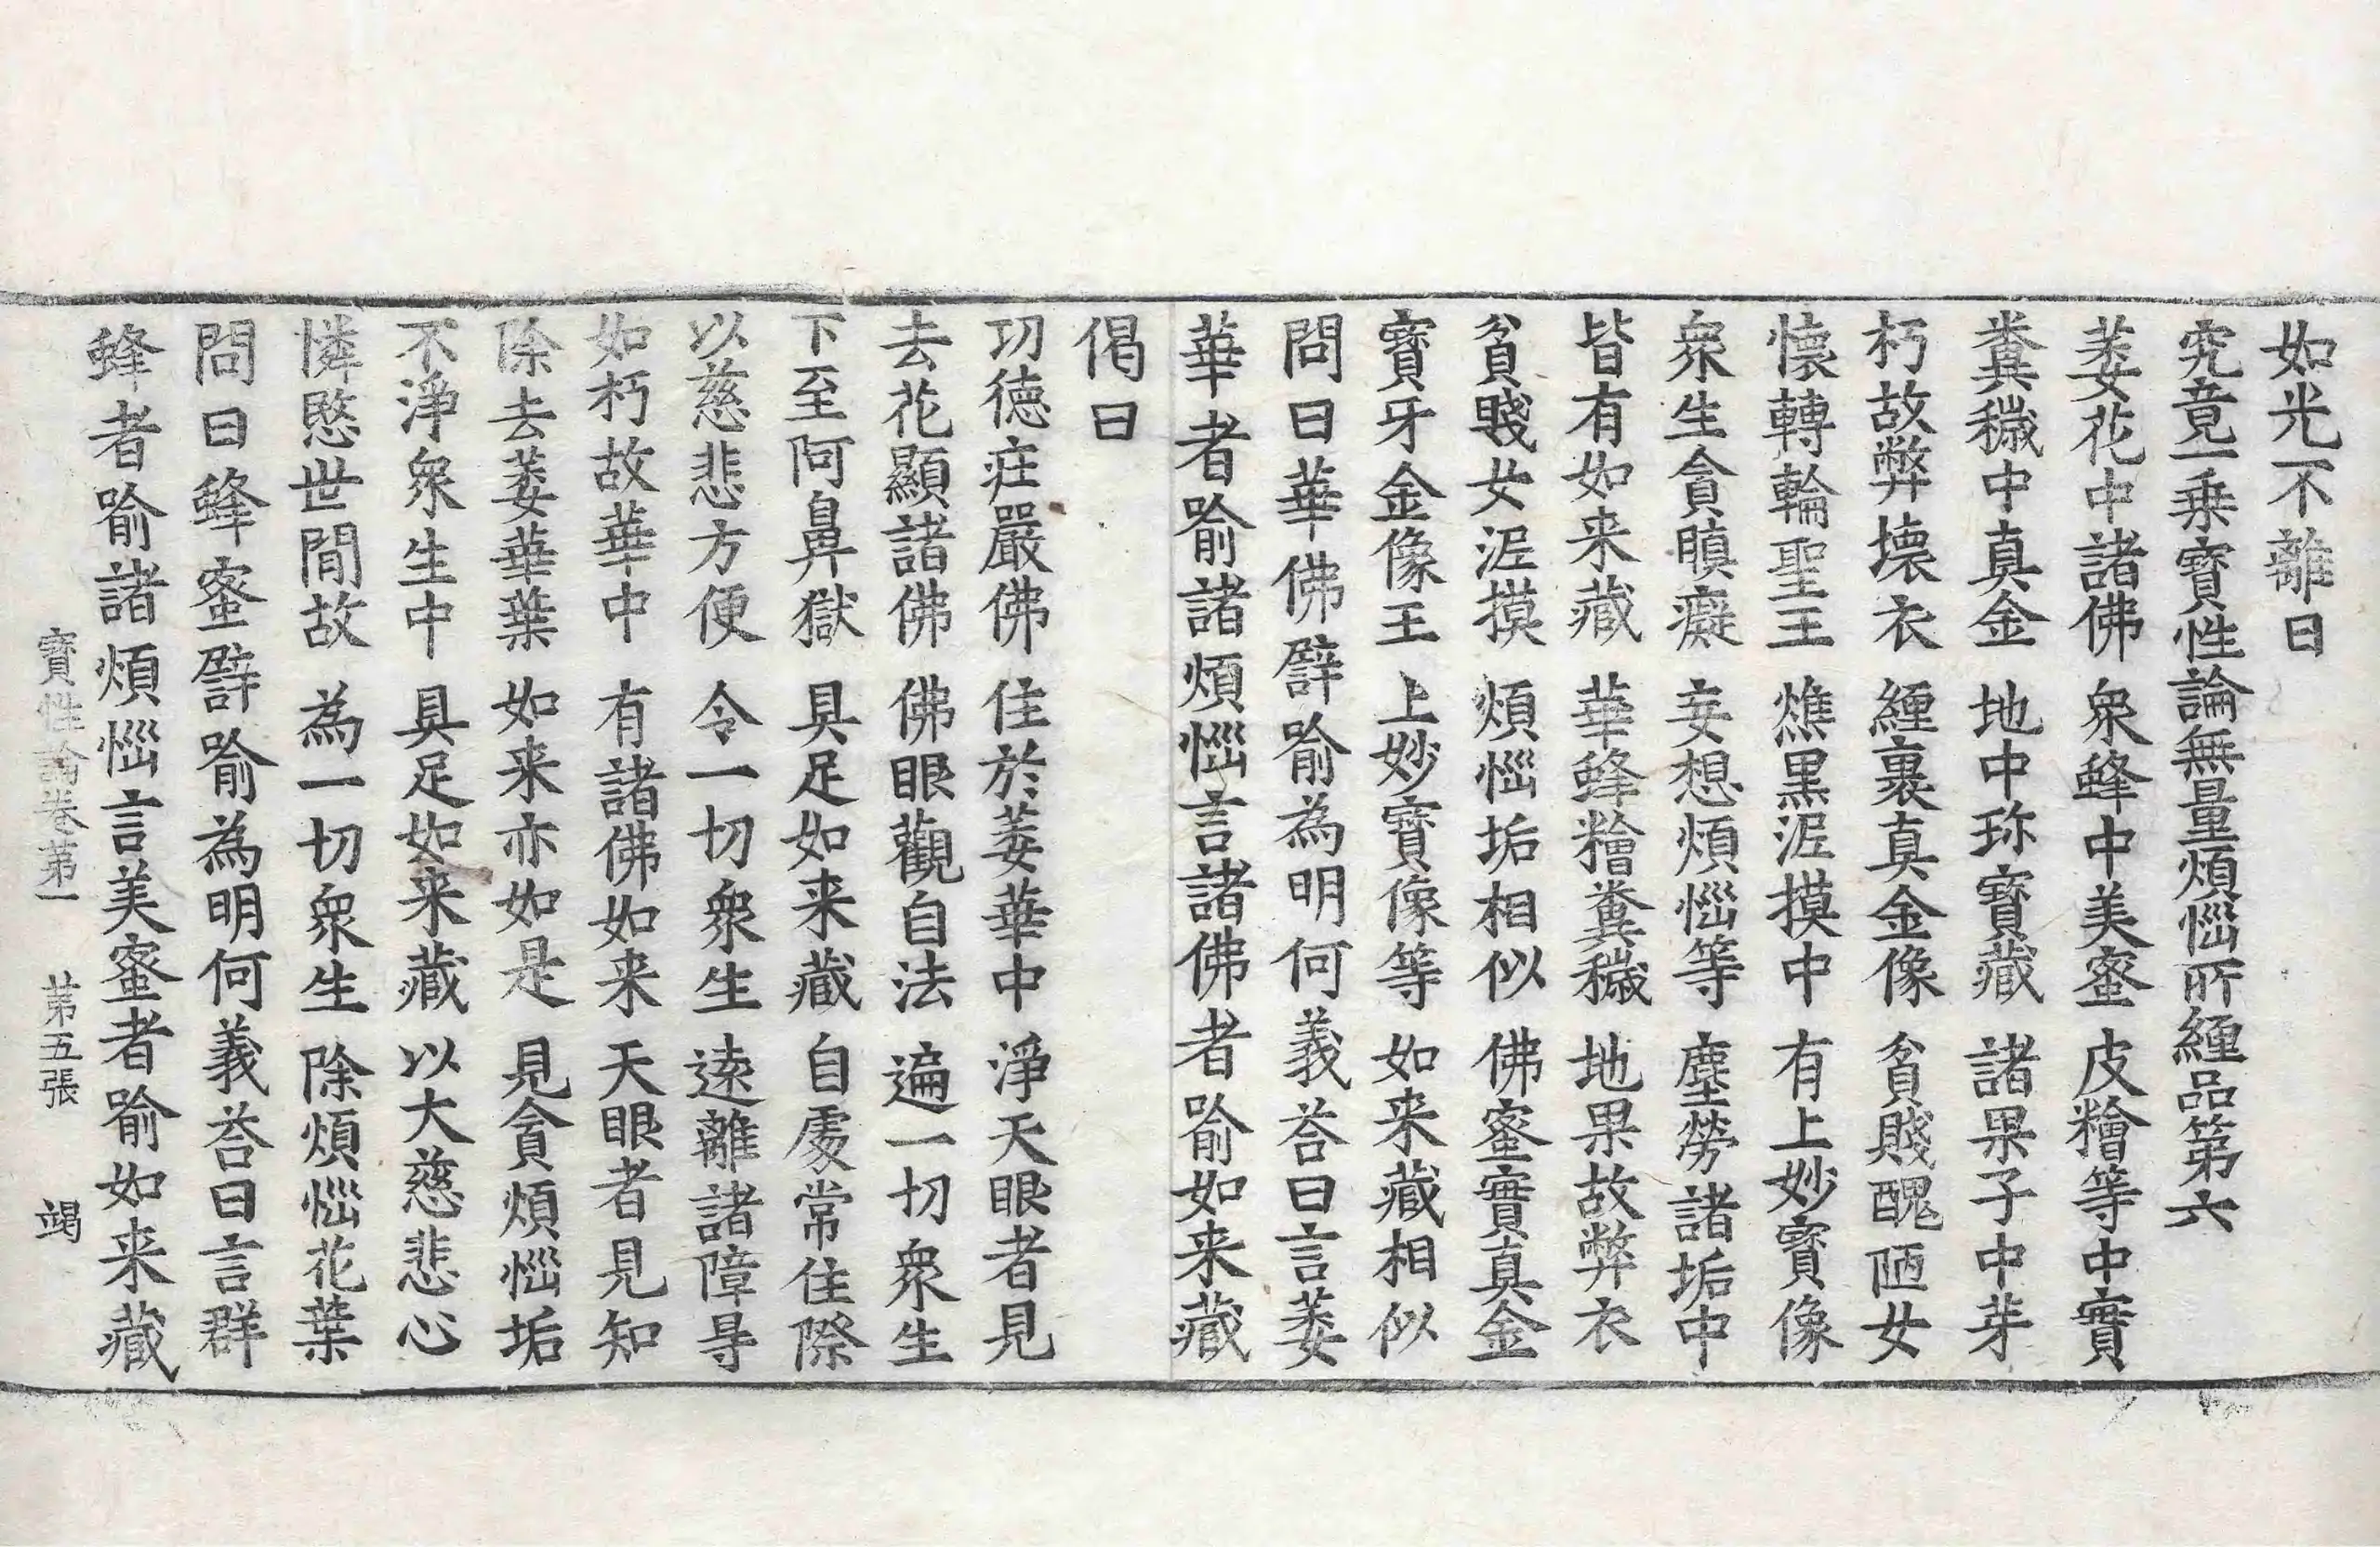 如光不離日
究竟一乗寶性論無量煩惱所纏品第六
萎花中諸佛 衆蜂中美蜜 皮糩等中實
糞穢中真金 地中珎寶藏 諸果子中芽
朽故弊壊衣 纏裹真金像 貧賤醜陋女
懐轉輪聖王 燋黒泥摸中 有上妙寶像
衆生貪瞋癡 妄想煩惱等 塵勞諸垢中
皆有如来藏 華蜂糩糞穢 地果故弊衣
貧賤女泥摸 煩惱垢相似 佛蜜實真金
寶牙金像王 上妙寶像等 如来藏相似
問曰華佛譬喻為明何義荅曰言萎
華者喻諸煩惱言諸佛者喻如来藏
偈曰
功徳荘嚴佛 住於萎華中 淨天眼者見
去花顯諸佛 佛眼觀自法 遍一切衆生
下至阿鼻獄 具足如来藏 自處常住際
以慈悲方便 令一切衆生 逺離諸障㝵
如朽故華中 有諸佛如来 天眼者見知
除去萎華葉 如来亦如是 見貪煩惱垢
不淨衆生中 具足如来藏 以大慈悲心
憐愍世間故 為一切衆生 除煩惱花葉
問曰蜂蜜譬喻為明何義荅曰言群
蜂者喻諸煩惱言美蜜者喻如来藏
寶性論卷第一 第五張 竭